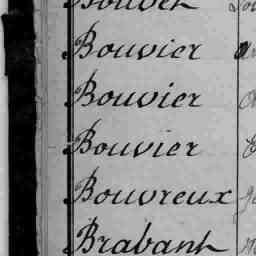 Bouvier
Bouvier
Bouvier
Bouvreux
Brabant